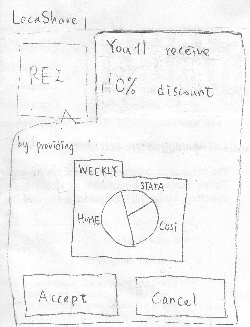 LocaShare
REI
You'll receive
10% discount
by providing
WEEKLY
STATA
HOME
Cosi
Accept
Cancel